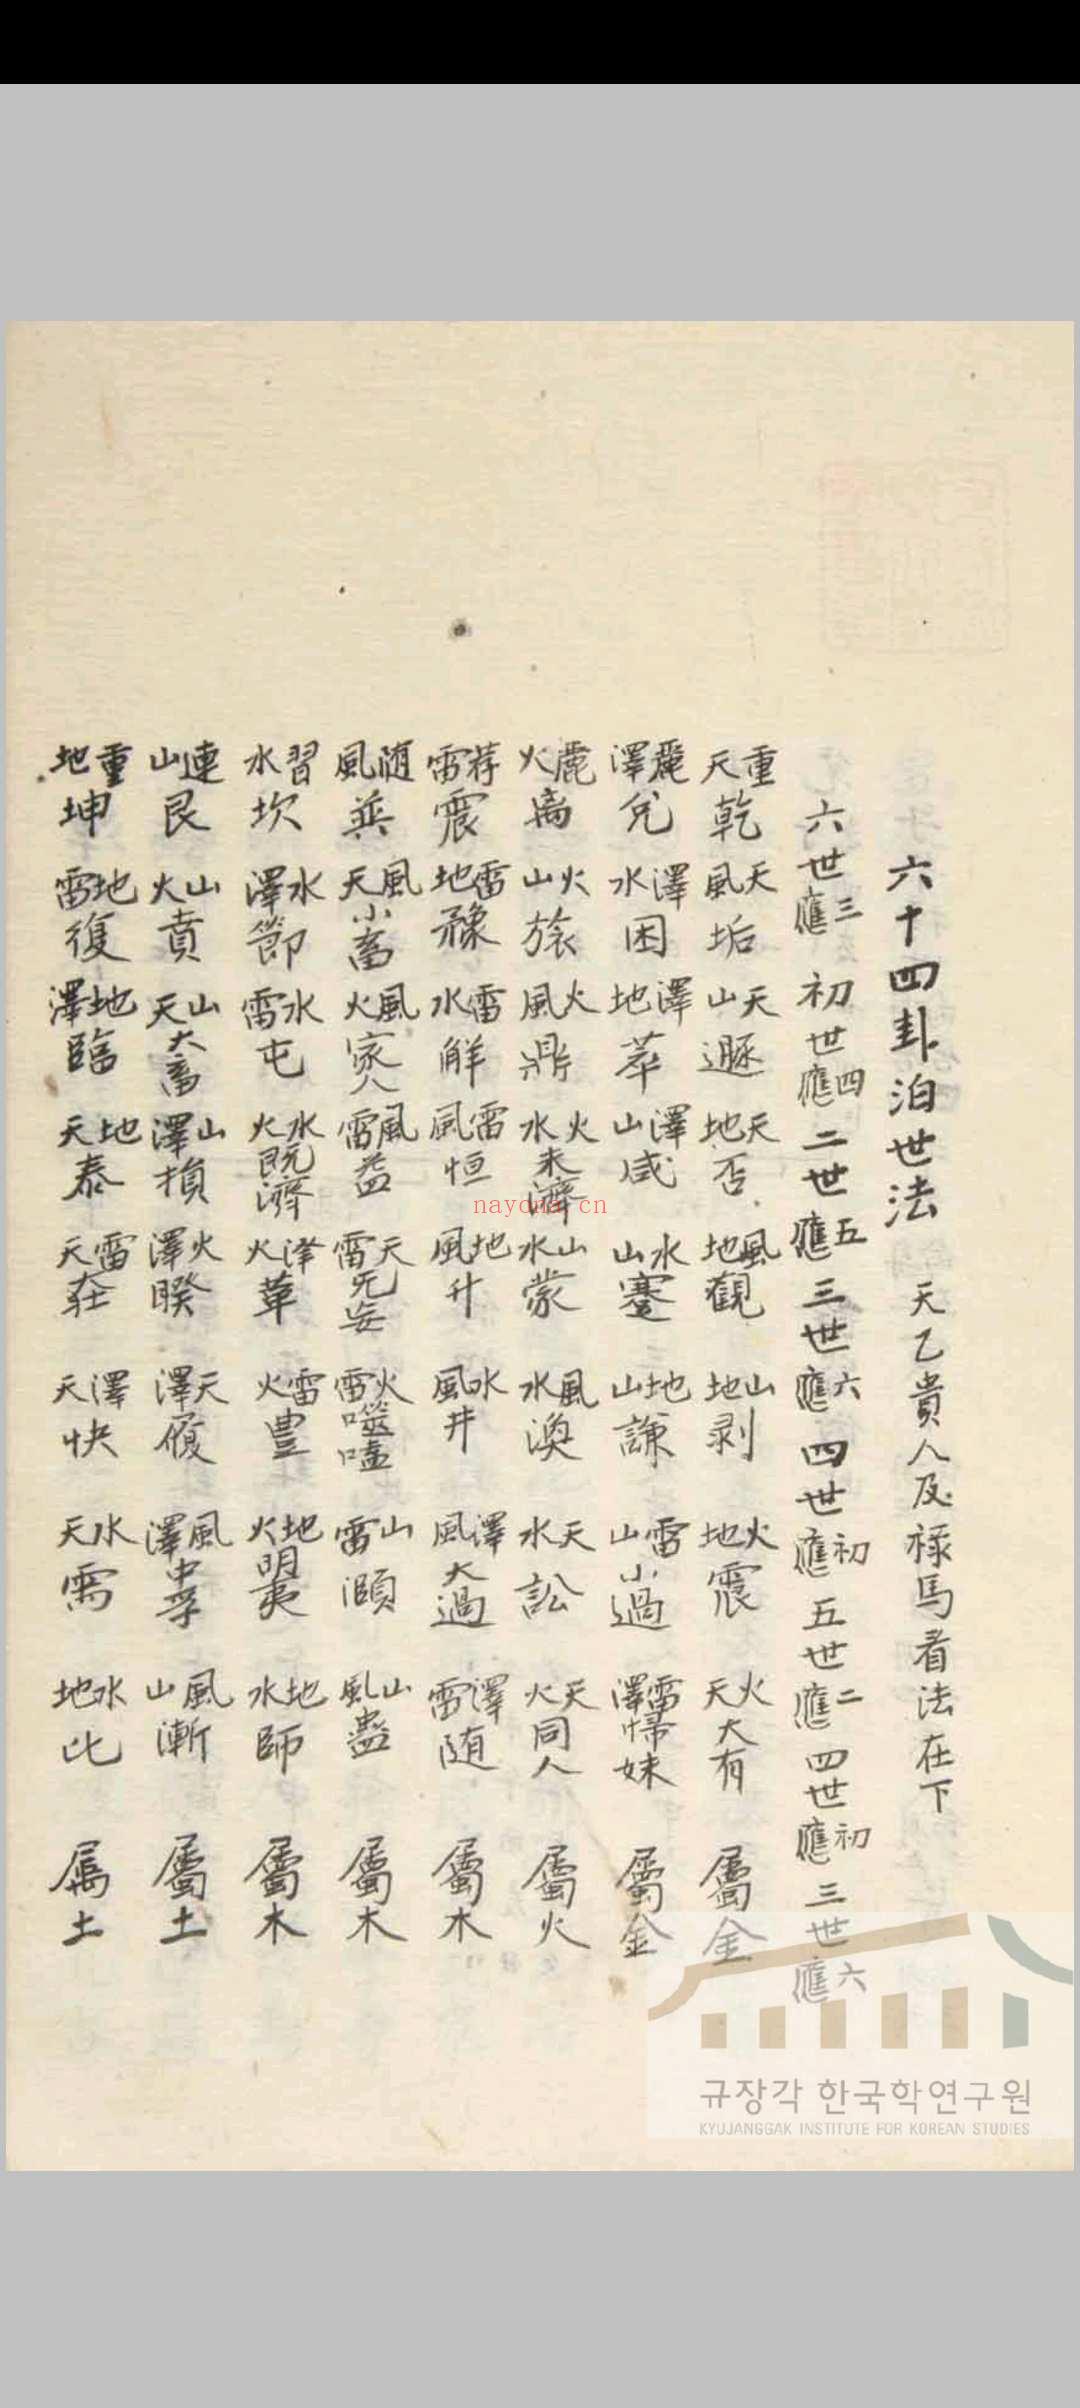 六十四卦泊世法 天乙貴人及祿馬看法在下
六世應三 初世應四 二世應五 三世應六 四世應初 五世應二 四世應初 三世應六
重天乾 天風垢 天山遯 天地否 風地觀 山地剥 火地震 火天大有 屬金
麗澤兌 澤水困 澤地萃 澤山咸 水山蹇 地山謙 雷山小過 雷澤帰妹 屬金
麗火离 火山旅 火風鼎 火水未濟 山水蒙 風水渙 天水訟 天火同人 屬火
荐雷震 雷地豫 雷水解 雷風恒 地風升 水風井 澤風大過 澤雷随 屬木
随風巽 風天小畜 風火家人 風雷益 天雷无妄 火雷噬嗑 山雷頤 山風蠱 屬木
習水坎 水澤節 水雷屯 水火既濟 澤火革 雷火豊 地火明夷 地水師 屬木
連山艮 山火賁 山天大畜 山澤損 火澤睽 天澤履 風澤中孚 風山漸 屬土
重地坤 地雷復 地澤臨 地天泰 雷天荘 澤天快 水天需 水地比 属土
nayona.cn
규장각 한국학연구원
KYUJANGGAK INSTITUTE FOR KOREAN STUDIES